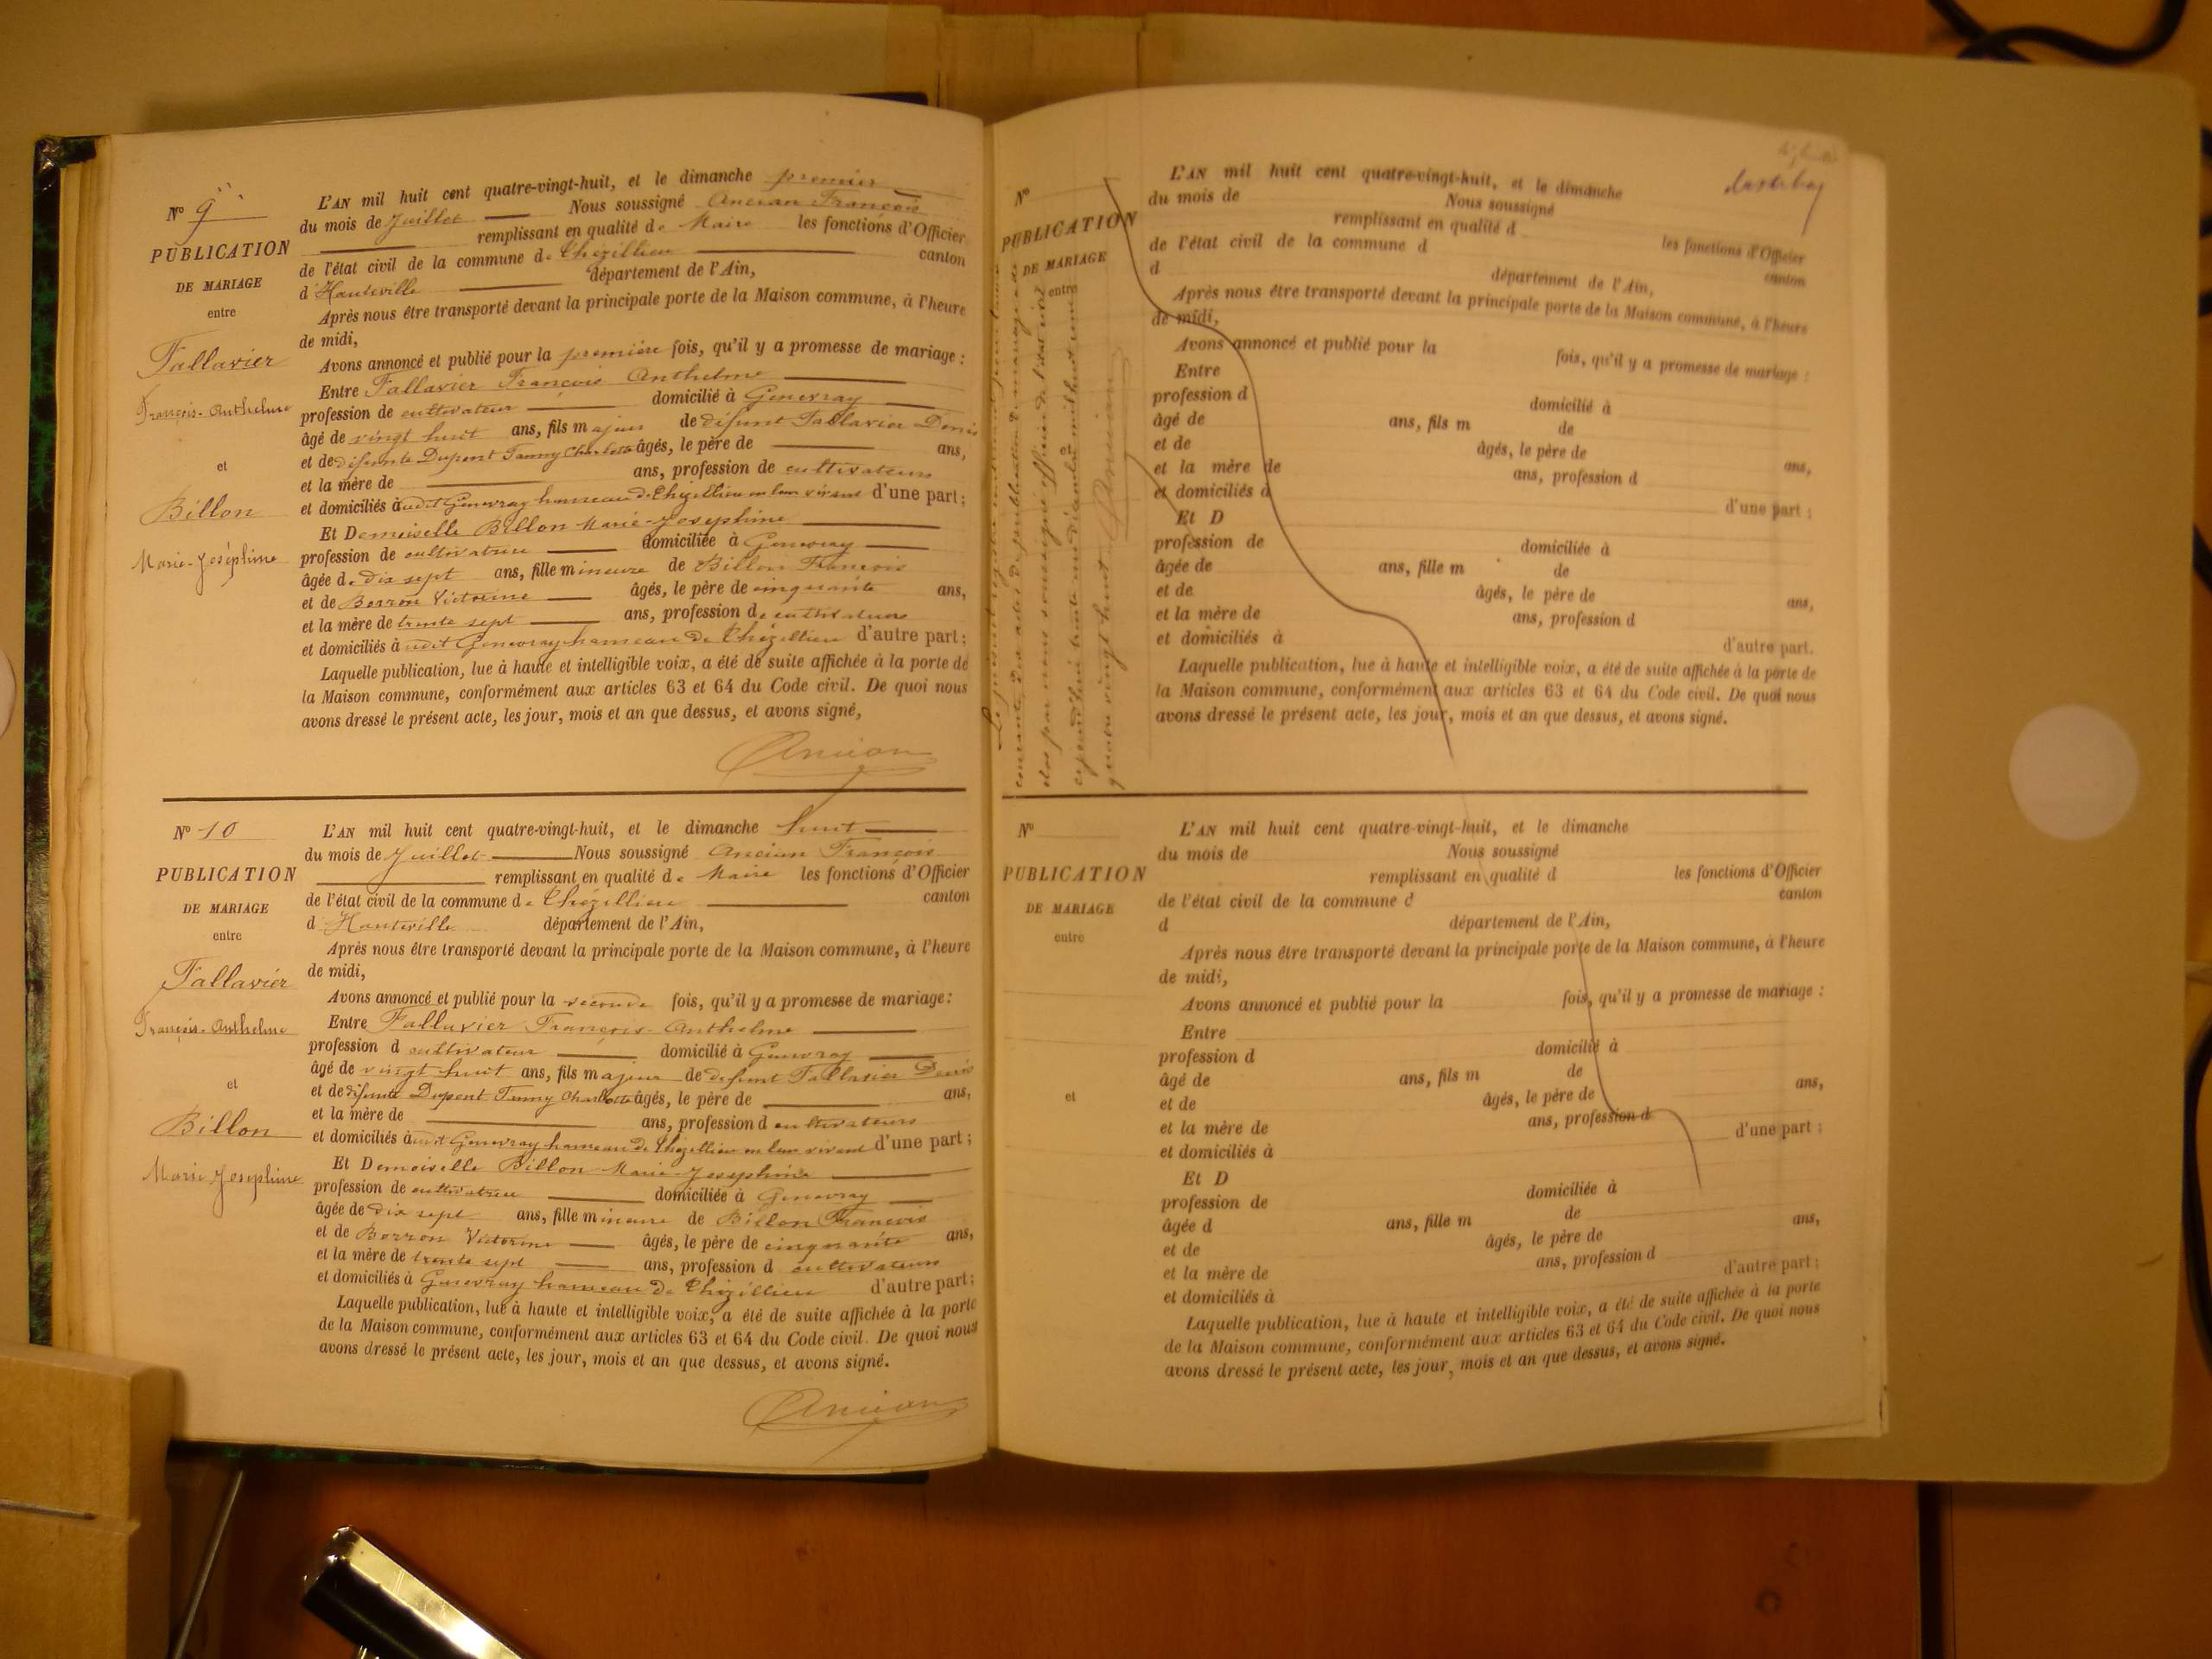 N° 9
PUBLICATION
DE MARIAGE
entre
Fallavier
François-Anthelme
et
Billon
Marie-Joséphine
L'AN mil huit cent quatre-vingt-huit, et le dimanche premier
du mois de Juillet Nous soussigné Ancian François
remplissant en qualité de Maire les fonctions d'Officier
de l'état civil de la commune de Thézillieu canton
d'Hauteville département de l'Ain,
Après nous être transporté devant la principale porte de la Maison commune, à l'heure
de midi,
Avons annoncé et publié pour la première fois, qu'il y a promesse de mariage :
Entre Fallavier François Anthelme
profession de cultivateur domicilié à Genevray
âgé de vingt huit ans, fils majeur de défunt Fallavier Denis
et de défunte Dupont Fanny Charlotte âgés, le père de ans,
et la mère de ans, profession de cultivateurs
et domiciliés audit Genevray hameau de Thézillieu en leur vivant d'une part ;
Et Demoiselle Billon Marie-Josephine
profession de cultivatrice domiciliée à Genevray
âgée de dix sept ans, fille mineure de Billon François
et de Borron Victorine âgés, le père de cinquante ans,
et la mère de trente sept ans, profession de cultivateurs
et domiciliés audit Genevray hameau de Thézillieu d'autre part ;
Laquelle publication, lue à haute et intelligible voix, a été de suite affichée à la porte de
la Maison commune, conformément aux articles 63 et 64 du Code civil. De quoi nous
avons dressé le présent acte, les jour, mois et an que dessus, et avons signé,
Ancian
N° 10
PUBLICATION
DE MARIAGE
entre
Fallavier
François-Anthelme
et
Billon
Marie Joséphine
L'AN mil huit cent quatre-vingt-huit, et le dimanche huit
du mois de Juillet Nous soussigné Ancian François
remplissant en qualité de Maire les fonctions d'Officier
de l'état civil de la commune de Thézillieu canton
d'Hauteville département de l'Ain,
Après nous être transporté devant la principale porte de la Maison commune, à l'heure
de midi,
Avons annoncé et publié pour la seconde fois, qu'il y a promesse de mariage :
Entre Fallavier François-Anthelme
profession d cultivateur domicilié à Genevray
âgé de vingt huit ans, fils majeur de défunt Fallavier Denis
et de défunte Dupont Fanny Charlotte âgés, le père de ans,
et la mère de ans, profession d cultivateurs
et domiciliés audit Genevray hameau de Thézillieu en leur vivant d'une part ;
Et Demoiselle Billon Marie-Josephine
profession de cultivatrice domiciliée à Genevray
âgée de dix sept ans, fille mineure de Billon François
et de Borron Victorine âgés, le père de cinquante ans,
et la mère de trente sept ans, profession d cultivateurs
et domiciliés à Genevray hameau de Thézillieu d'autre part ;
Laquelle publication, lue à haute et intelligible voix, a été de suite affichée à la porte
de la Maison commune, conformément aux articles 63 et 64 du Code civil. De quoi nous
avons dressé le présent acte, les jour, mois et an que dessus, et avons signé.
Ancian
N°
PUBLICATION
DE MARIAGE
entre
Le présent registre
des actes de publication de mariage a été
clos par nous soussigné officier de l'état civil
cejourd'hui trente un décembre mil huit cent
quatre vingt huit
Ancian
L'AN mil huit cent quatre-vingt-huit, et le dimanche
du mois de Nous soussigné
remplissant en qualité d les fonctions d'Officier
de l'état civil de la commune d canton
d département de l'Ain,
Après nous être transporté devant la principale porte de la Maison commune, à l'heure
de midi,
Avons annoncé et publié pour la fois, qu'il y a promesse de mariage :
Entre
profession d domicilié à
âgé de ans, fils m de
et de âgés, le père de ans,
et la mère de ans, profession d
et domiciliés à d'une part ;
Et D
profession de domiciliée à
âgée de ans, fille m de
et de âgés, le père de ans,
et la mère de ans, profession d
et domiciliés à d'autre part.
Laquelle publication, lue à haute et intelligible voix, a été de suite affichée à la porte de
la Maison commune, conformément aux articles 63 et 64 du Code civil. De quoi nous
avons dressé le présent acte, les jour, mois et an que dessus, et avons signé.
N°
PUBLICATION
DE MARIAGE
entre
et
L'AN mil huit cent quatre-vingt-huit, et le dimanche
du mois de Nous soussigné
remplissant en qualité d les fonctions d'Officier
de l'état civil de la commune d canton
d département de l'Ain,
Après nous être transporté devant la principale porte de la Maison commune, à l'heure
de midi,
Avons annoncé et publié pour la fois, qu'il y a promesse de mariage :
Entre
profession d domicilié à
âgé de ans, fils m de
et de âgés, le père de ans,
et la mère de ans, profession d
et domiciliés à d'une part ;
Et D
profession de domiciliée à
âgée d ans, fille m de
et de âgés, le père de ans,
et la mère de ans, profession d
et domiciliés à d'autre part ;
Laquelle publication, lue à haute et intelligible voix, a été de suite affichée à la porte
de la Maison commune, conformément aux articles 63 et 64 du Code civil. De quoi nous
avons dressé le présent acte, les jour, mois et an que dessus, et avons signé.